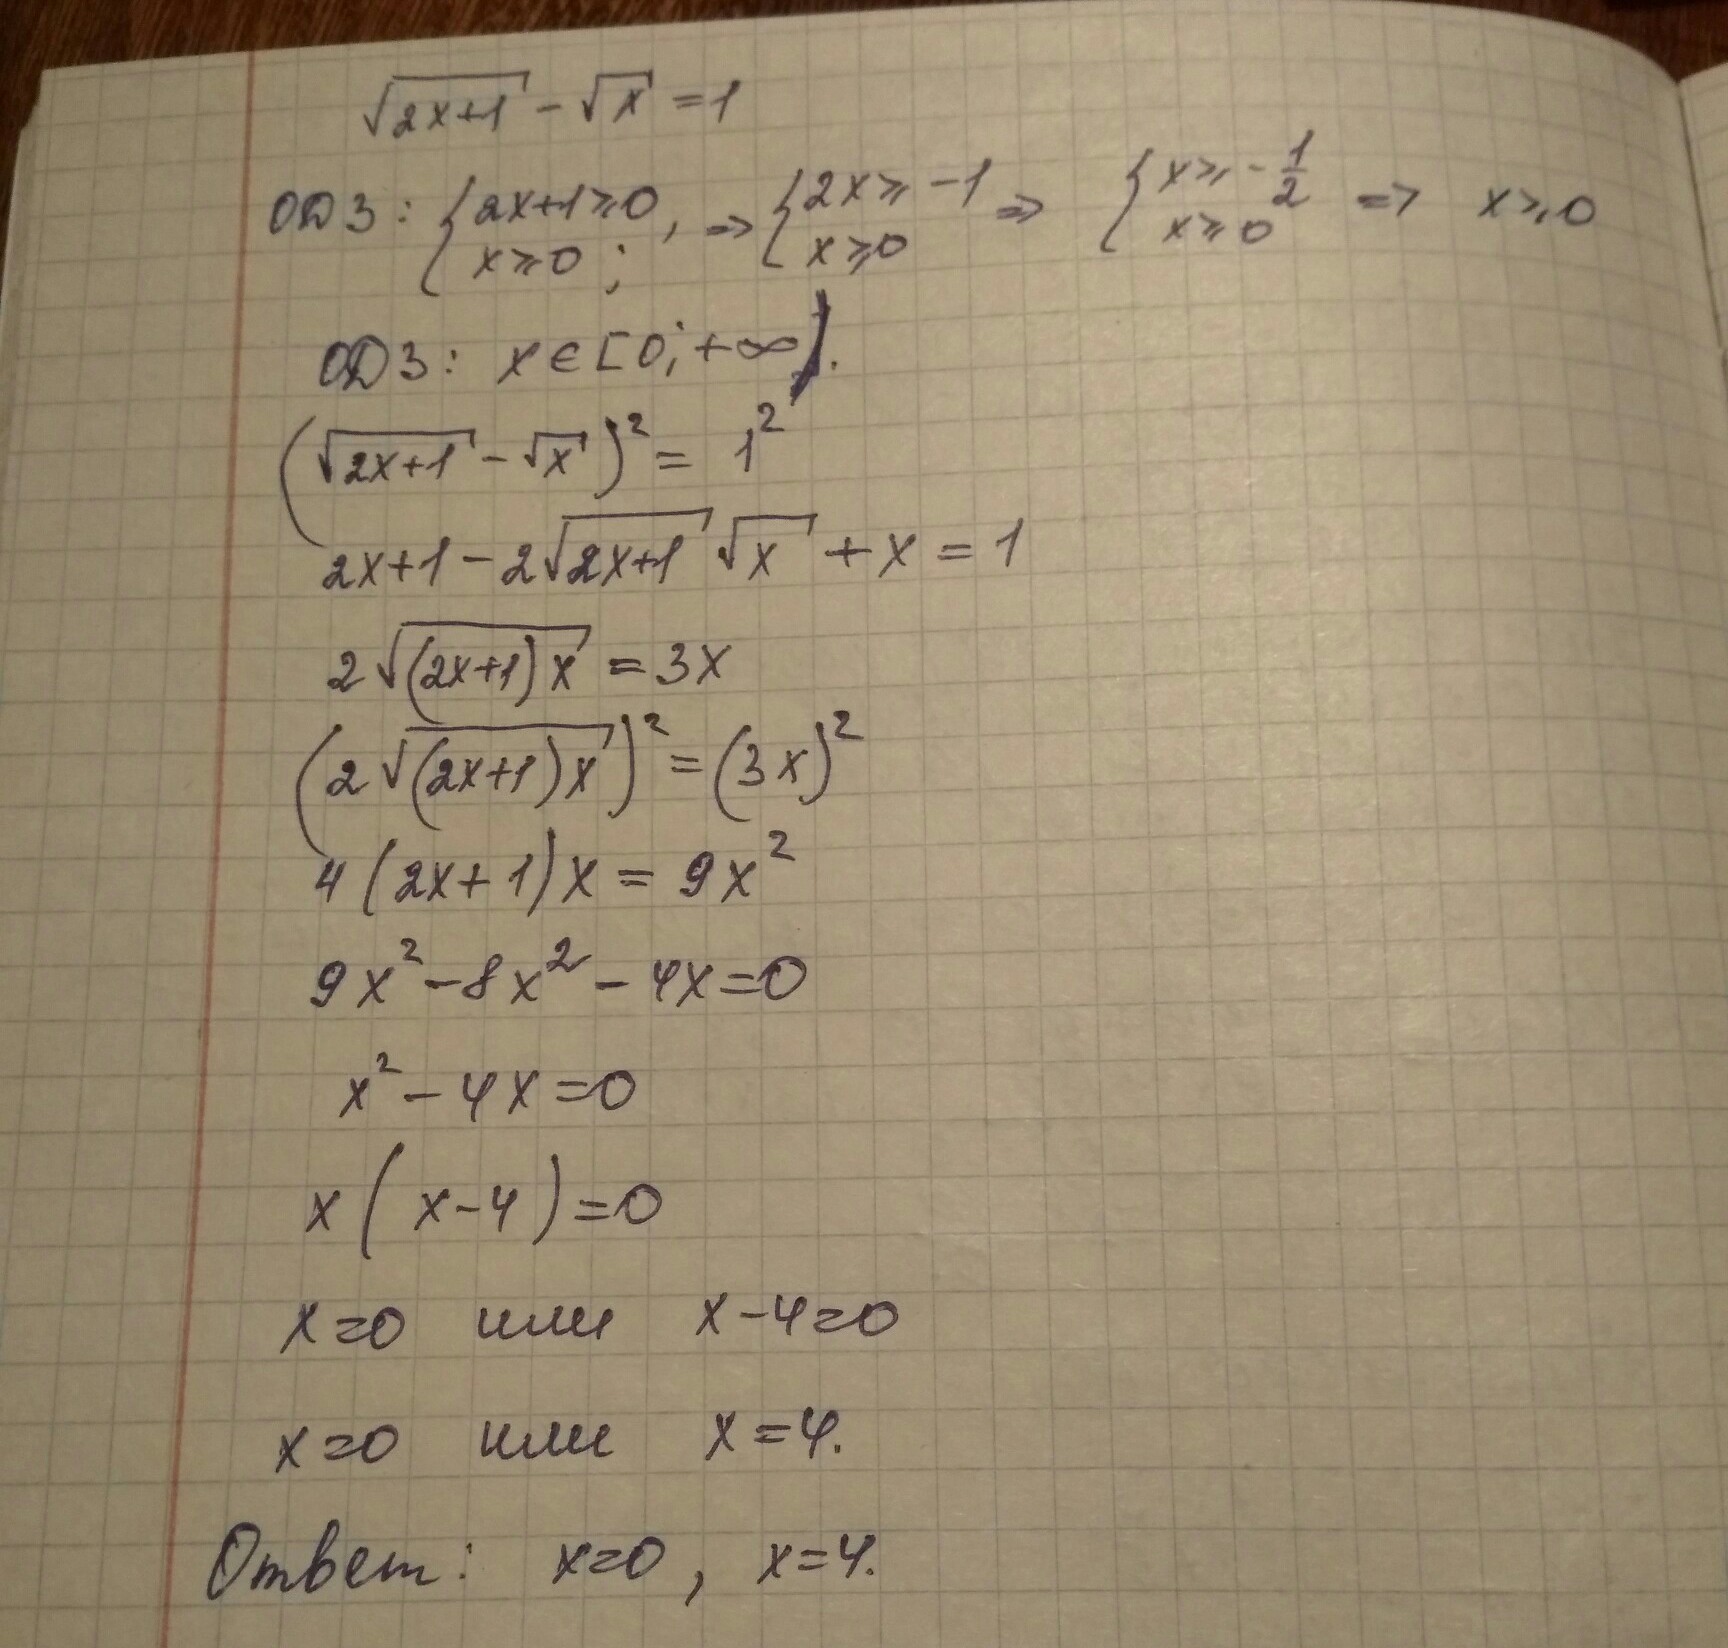 √2x+1 − √x = 1
ОДЗ: { 2x+1⩾0, x⩾0; => { 2x⩾−1 x⩾0 => { x⩾−1/2 x⩾0 => x⩾0
ОДЗ: x∈[0;+∞).
(√2x+1 − √x)² = 1²
2x+1−2√2x+1 √x + x = 1
2√(2x+1)x = 3x
(2√(2x+1)x)² = (3x)²
4(2x+1)x = 9x²
9x²−8x²−4x=0
x²−4x=0
x(x−4)=0
x=0 или x−4=0
x=0 или x=4.
Ответ: x=0, x=4.